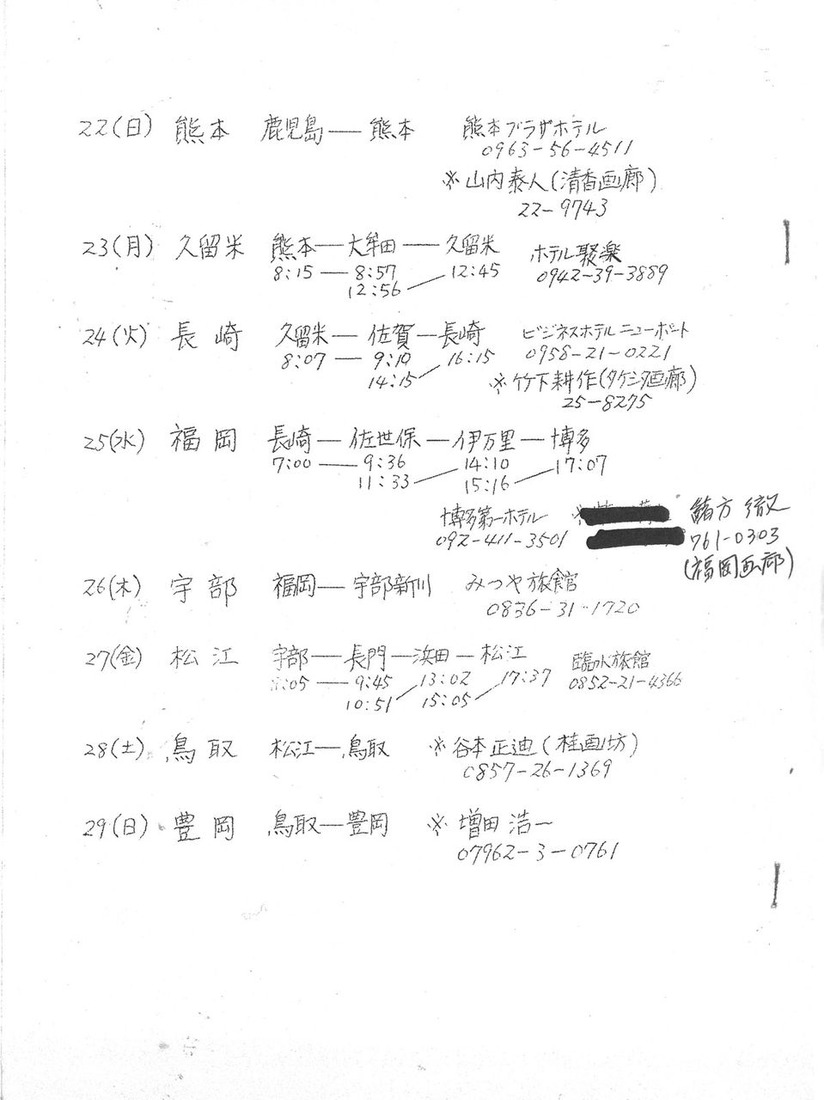 22(日) 熊本 鹿児島―熊本 熊本プラザホテル
0963-56-4511
※山内泰人(清香画廊)
22-9743
23(月) 久留米 熊本―大牟田―久留米 ホテル聚楽
8:15―8:57 12:45 0942-39-3889
12:56
24(火) 長崎 久留米―佐賀―長崎 ビジネスホテルニューポート
8:07―9:10 16:15 0958-21-0221
14:15 ※竹下耕作(タケシタ画廊)
25-8275
25(水) 福岡 長崎―佐世保―伊万里―博多
7:00―9:36 14:10 17:07
11:33 15:16
博多第一ホテル ※ 緒方徹
092-411-3501 761-0303
(福岡画廊)
26(木) 宇部 福岡―宇部新川 みつや旅館
0836-31-1720
27(金) 松江 宇部―長門―浜田―松江 臨水旅館
:05―9:45 13:02 17:37 0852-21-4366
10:51 15:05
28(土) 鳥取 松江―鳥取 ※谷本正迪(桂画坊)
0857-26-1369
29(日) 豊岡 鳥取―豊岡 ※増田浩一
07962-3-0761